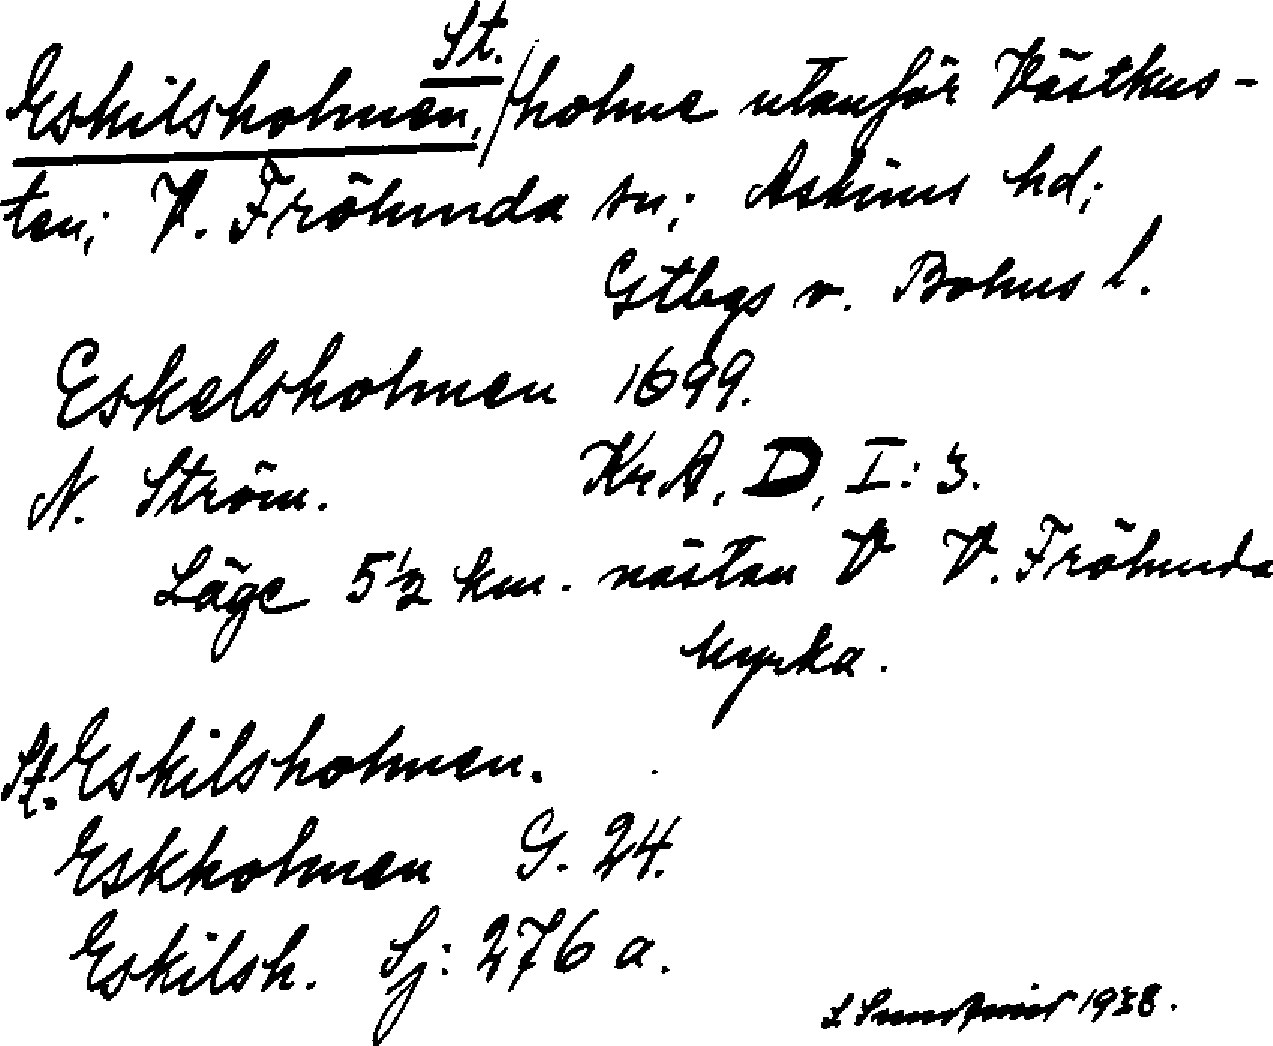 Eskilsholmen, St. / holme utanför Västkus-
ten; V. Frölunda sn; Askims hd;
Gtbgs o. Bohus l.
Eskelsholmen 1699.
N. Ström. KrA, D, I: 3.
Läge 5½ km. nästan V V. Frölunda
kyrka.
St. Eskilsholmen.
Eskholmen G. 24.
Eskilsh. Sj: 276 a.
1938.